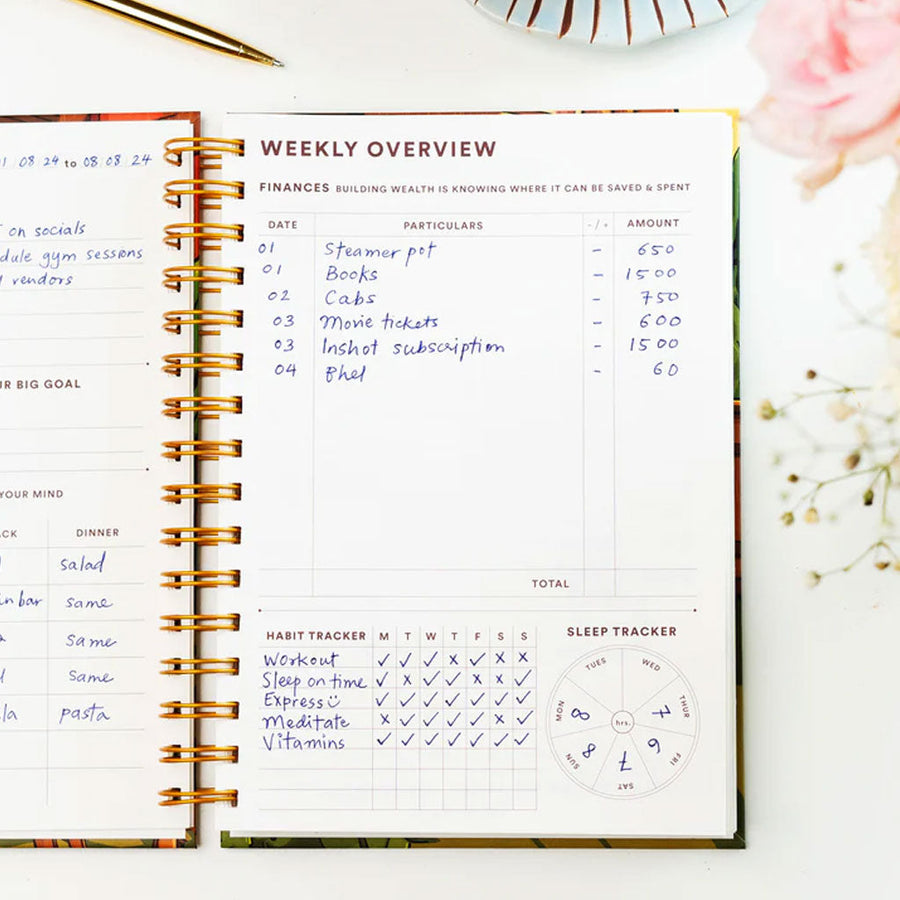 08 24 to 08 08 24
on socials
dule gym sessions
vendors
UR BIG GOAL
YOUR MIND
CK DINNER
salad
in bar same
same
same
la pasta
WEEKLY OVERVIEW
FINANCES BUILDING WEALTH IS KNOWING WHERE IT CAN BE SAVED & SPENT
DATE PARTICULARS -/+ AMOUNT
01 Steamer pot - 650
01 Books - 1500
02 Cabs - 750
03 Movie tickets - 600
03 Inshot subscription - 1500
04 Bhel - 60
TOTAL
HABIT TRACKER M T W T F S S
Workout ✓ ✓ ✓ x ✓ x x
Sleep on time ✓ x ✓ ✓ x x ✓
Express ☺ ✓ ✓ ✓ ✓ ✓ ✓ ✓
Meditate x ✓ ✓ ✓ ✓ x ✓
Vitamins ✓ ✓ ✓ ✓ ✓ ✓ ✓
SLEEP TRACKER
TUES WED
MON 8 hrs. 7 THUR
SUN 8 7 6 FRI
SAT